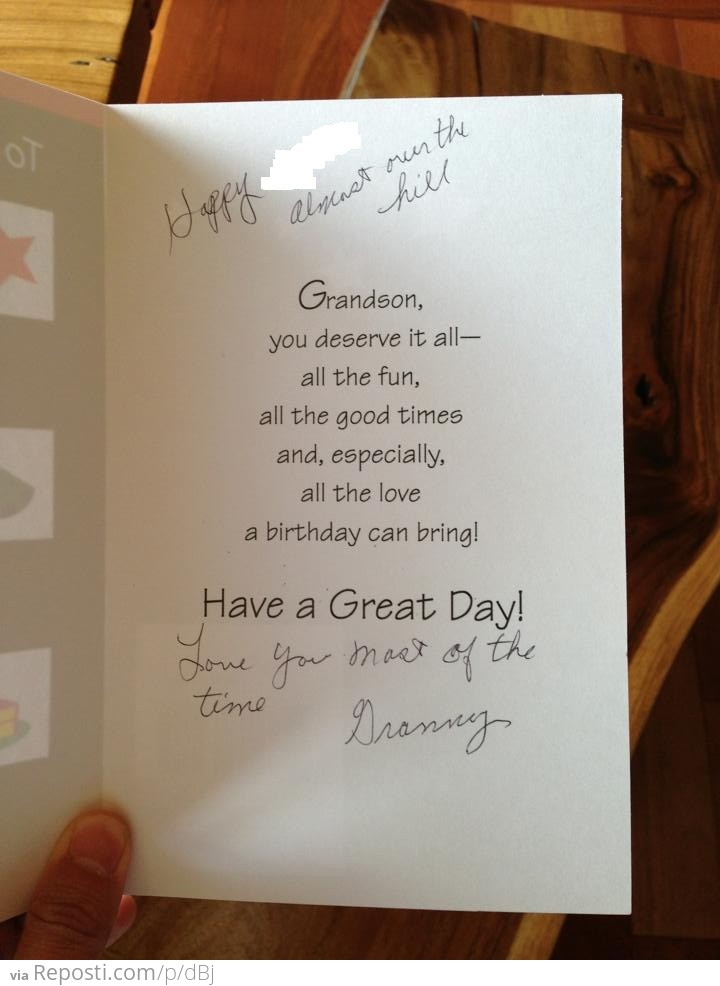 To
Happy almost over the
hill
Grandson,
you deserve it all—
all the fun,
all the good times
and, especially,
all the love
a birthday can bring!
Have a Great Day!
Love you most of the
time
Granny
via Reposti.com/p/dBj